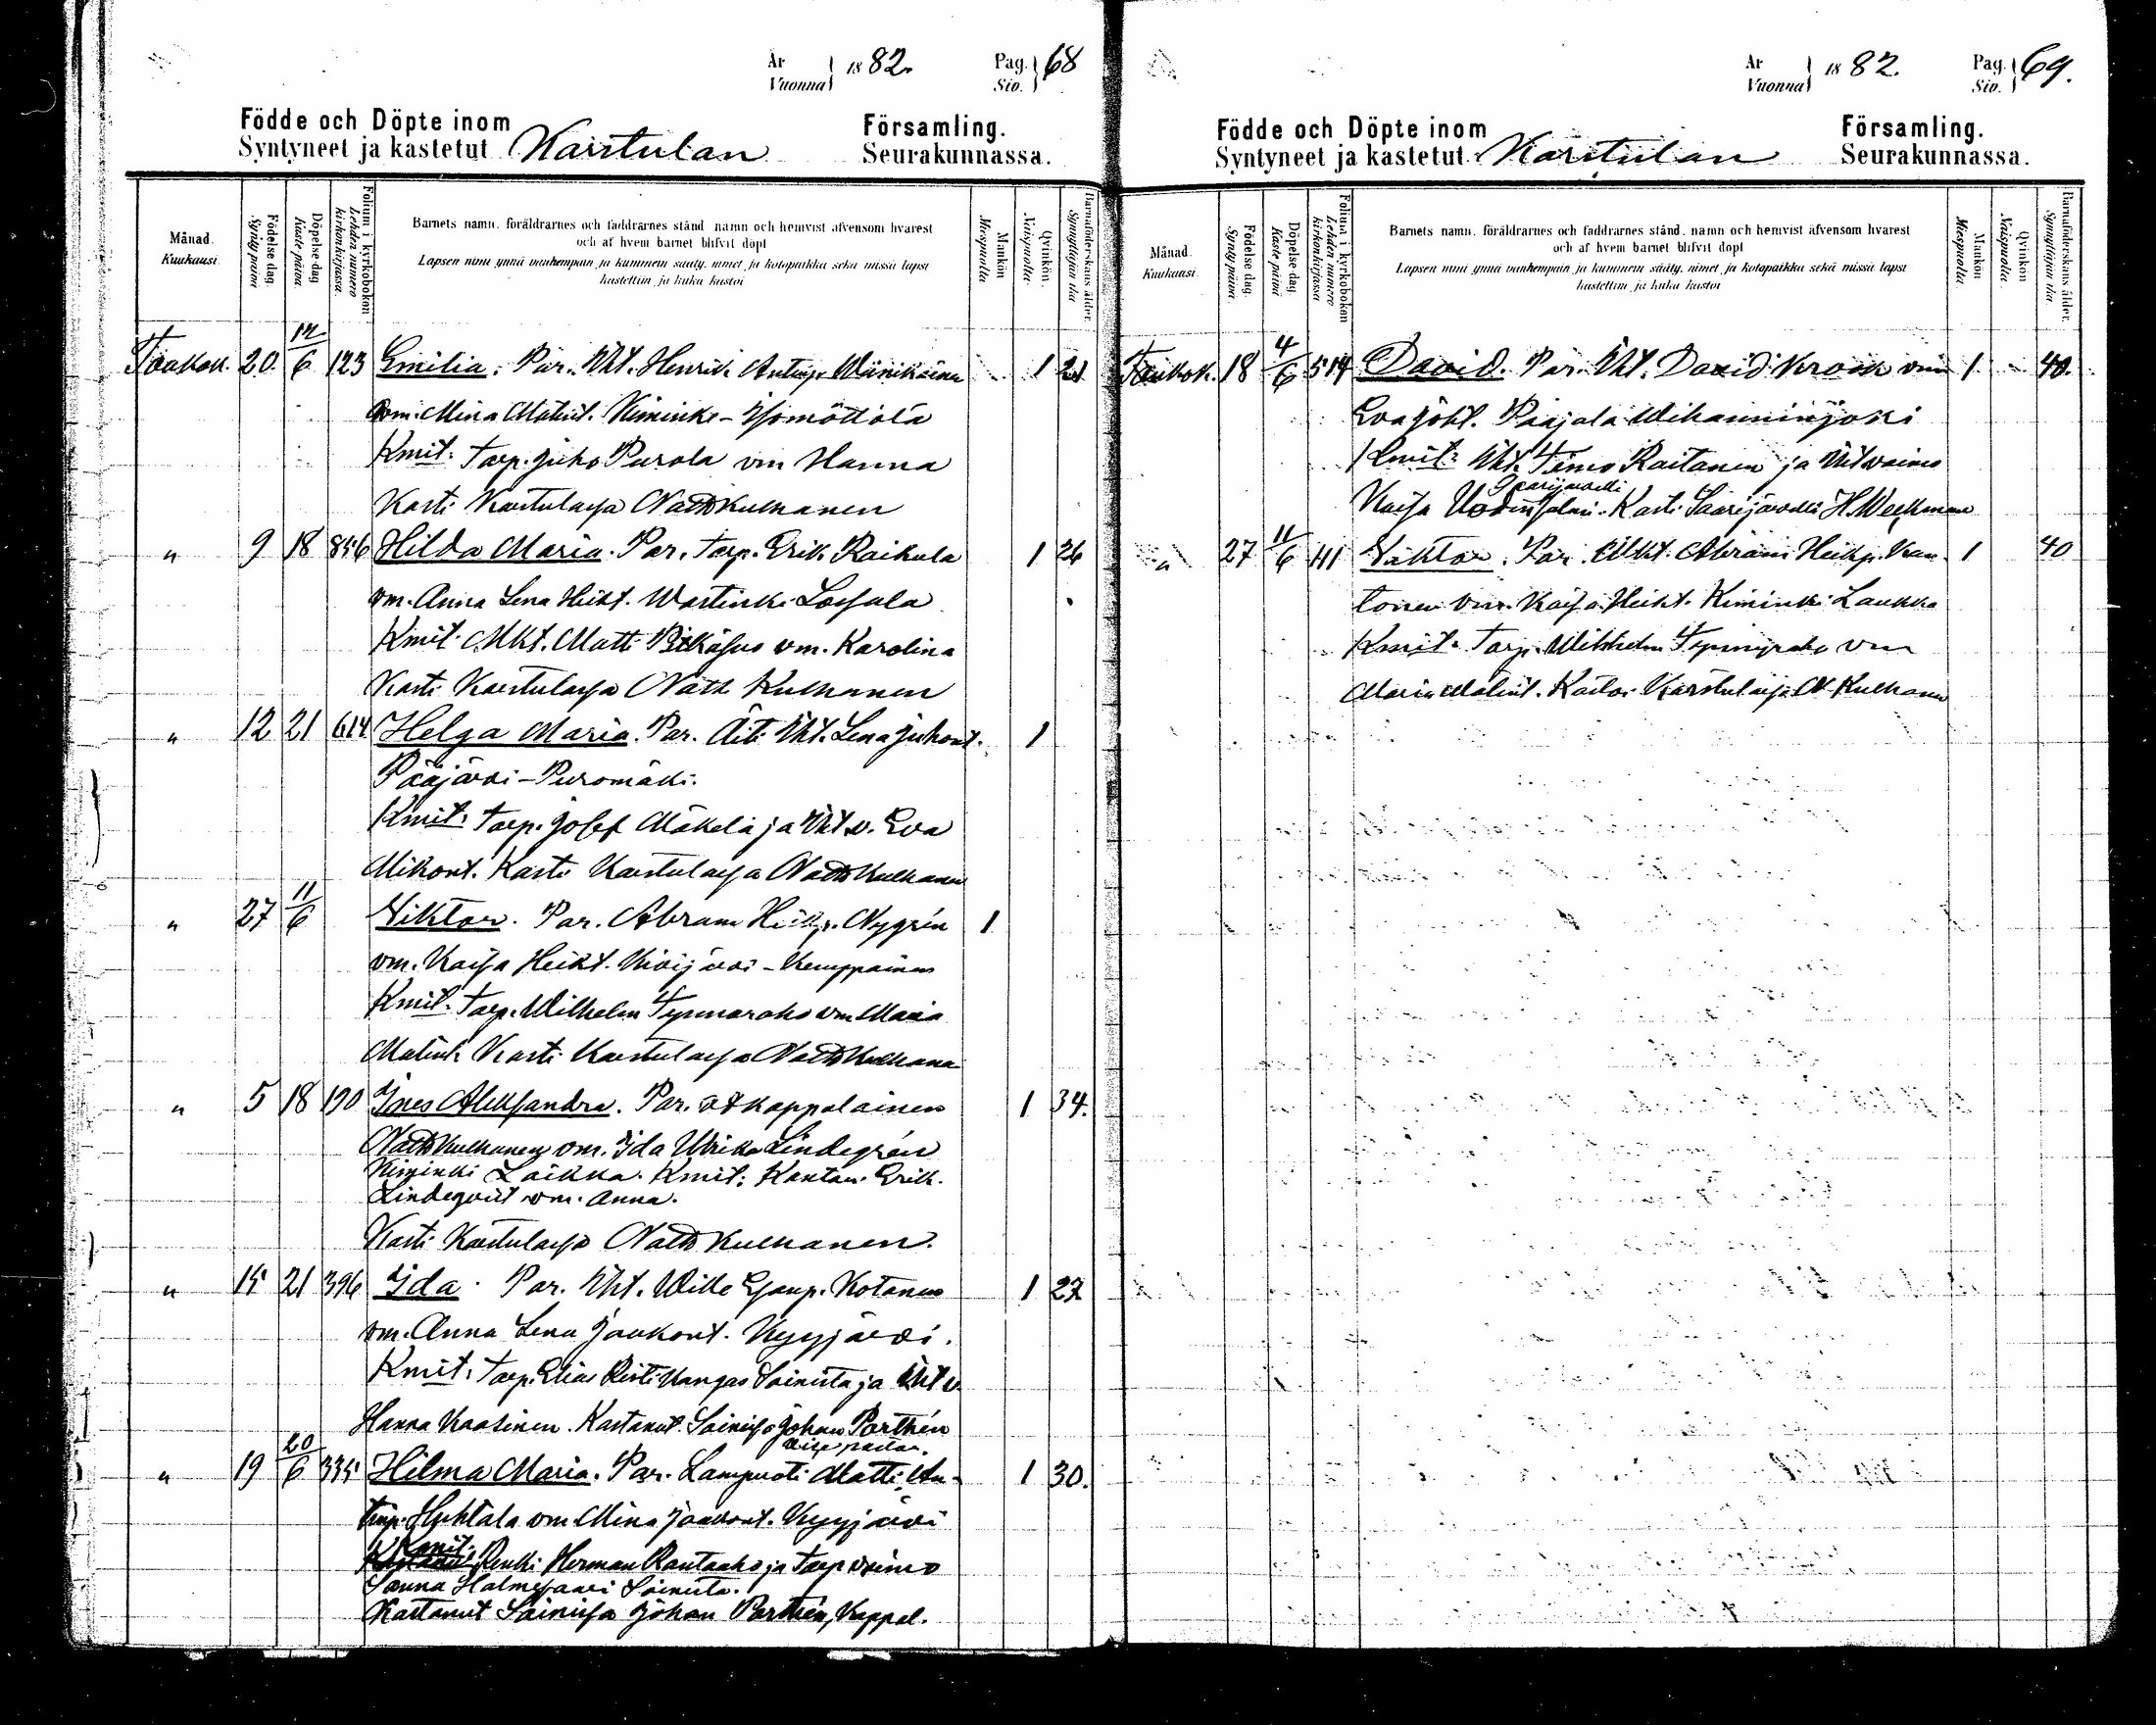 År Vuonna 1882. Pag. Siv. 68
Födde och Döpte inom Församling.
Syntyneet ja kastetut Karstulan Seurakunnassa.
Månad. Kuukausi.
Födelse dag. Synty päivä
Döpelse dag Kaste päivä.
Folium i kyrkoboken Lehden numero kirkonkirjassa.
Barnets namn, föräldrarnes och faddrarnes stånd namn och hemvist äfvensom hvarest
och af hvem barnet blifvit döpt
Lapsen nimi ynnä vanhempain ja kummein sääty, nimet ja kotopaikka sekä missä lapsi
kastettiin ja kuka kastoi
Mankön Miespuolia
Qvinkön. Naispuolia.
Barnaföderskans ålder. Synnyttäjän ikä
Toukok. 20. 12/6 123 Emilia. Par. Itkt. Henrik Antinp. Wänikäinen 1 21
vm. Mina Matint. Kiminki - Isomöttölä
Kmit. Torp. Juho Purola vm Hanna
Kasti Karstulassa Nath Kulhanen
" 9 18 856 Hilda Maria. Par. Torp. Erik Raikula 1 26
vm. Anna Lena Heikt. Wastinki
Kmit. Mkt. Matti Pitkäsuo vm. Karolina
Kasti Karstulassa Nath Kulhanen
" 12 21 614 Helga Maria. Par. Äiti Itkt. Lena Juhont. 1
Pääjärvi - Puromäki.
Kmit. Torp. Josef Mäkelä ja Itkt v. Eva
Mikont. Kasti Karstulassa Nath Kulhanen
" 27 11/6 Viktor. Par. Abram Heikp. Nygrén 1
vm. Kaisa Heikt. Kivijärvi - Kemppainen
Kmit. Torp. Wilhelm Tynnaraho vm Maria
Matint. Kasti Karstulassa Nath Kulhanen
" 5 18 190 Ines Aleksandra. Par. vt kappalainen 1 34.
Nath Kulhanen vm. Ida Ulrika Lindegrén
Kiminki Laukka. Kmit: Kantor. Erik.
Lindeqvist vm. Anna.
Kasti Karstulassa Nath Kulhanen.
" 15 21 396 Ida. Par. Itkt. Wille Esaup. Kotanen 1 27
vm. Anna Lena Jaakont. Kyyjärvi.
Kmit: Torp. Elias Ristikangas Soinista ja Itkt v.
Hanna Kaasinen. Kastanut Soinissa Johan Parthén
" 19 20/6 335 Hilma Maria. Par. Lampuoti Matti An- 1 30.
tinp. Huhtala vm Mina Jaakont. Kyyjärvi
Kmit. Renki Herman Rantaaho ja Torp vaimo
Sanna Halmesaari Soinista.
Kastanut Soinissa Johan Parthén, Kappal.
År Vuonna 1882. Pag. Siv. 69.
Födde och Döpte inom Församling.
Syntyneet ja kastetut Karstulan Seurakunnassa.
Månad Kuukausi.
Födelse dag. Synty päivä
Döpelse dag. Kaste päivä
Folium i kyrkoboken Lehden numero kirkonkirjassa
Barnets namn, föräldrarnes och faddrarnes stånd, namn och hemvist äfvensom hvarest
och af hvem barnet blifvit döpt
Lapsen nimi ynnä vanhempain ja kummein sääty, nimet ja kotopaikka sekä missä lapsi
kastettiin ja kuka kastoi
Mankön Miespuolia
Qvinkön Naispuolia.
Barnaföderskans ålder. Synnyttäjän ikä.
Toukok. 18 4/6 514 David. Par. Itkt. David Krook vm 1 40.
Eva Joht. Pääjala Wihanninjoki
Kmit: Itkt. Timo Raitanen ja Itkt vaimo
Saarijärvelli
Kaisa Kasti Saarijärvellä H. Weckman
" 27 11/6 411 Viktor. Par. Mkt. Abram Heikp. Kan- 1 40
tonen vm. Kaisa Heikt. Kiminki Laukka
Kmit. Torp. Wilhelm Tynnyraho vm
Maria Matint. Kastoi Karstulassa N. Kulhanen